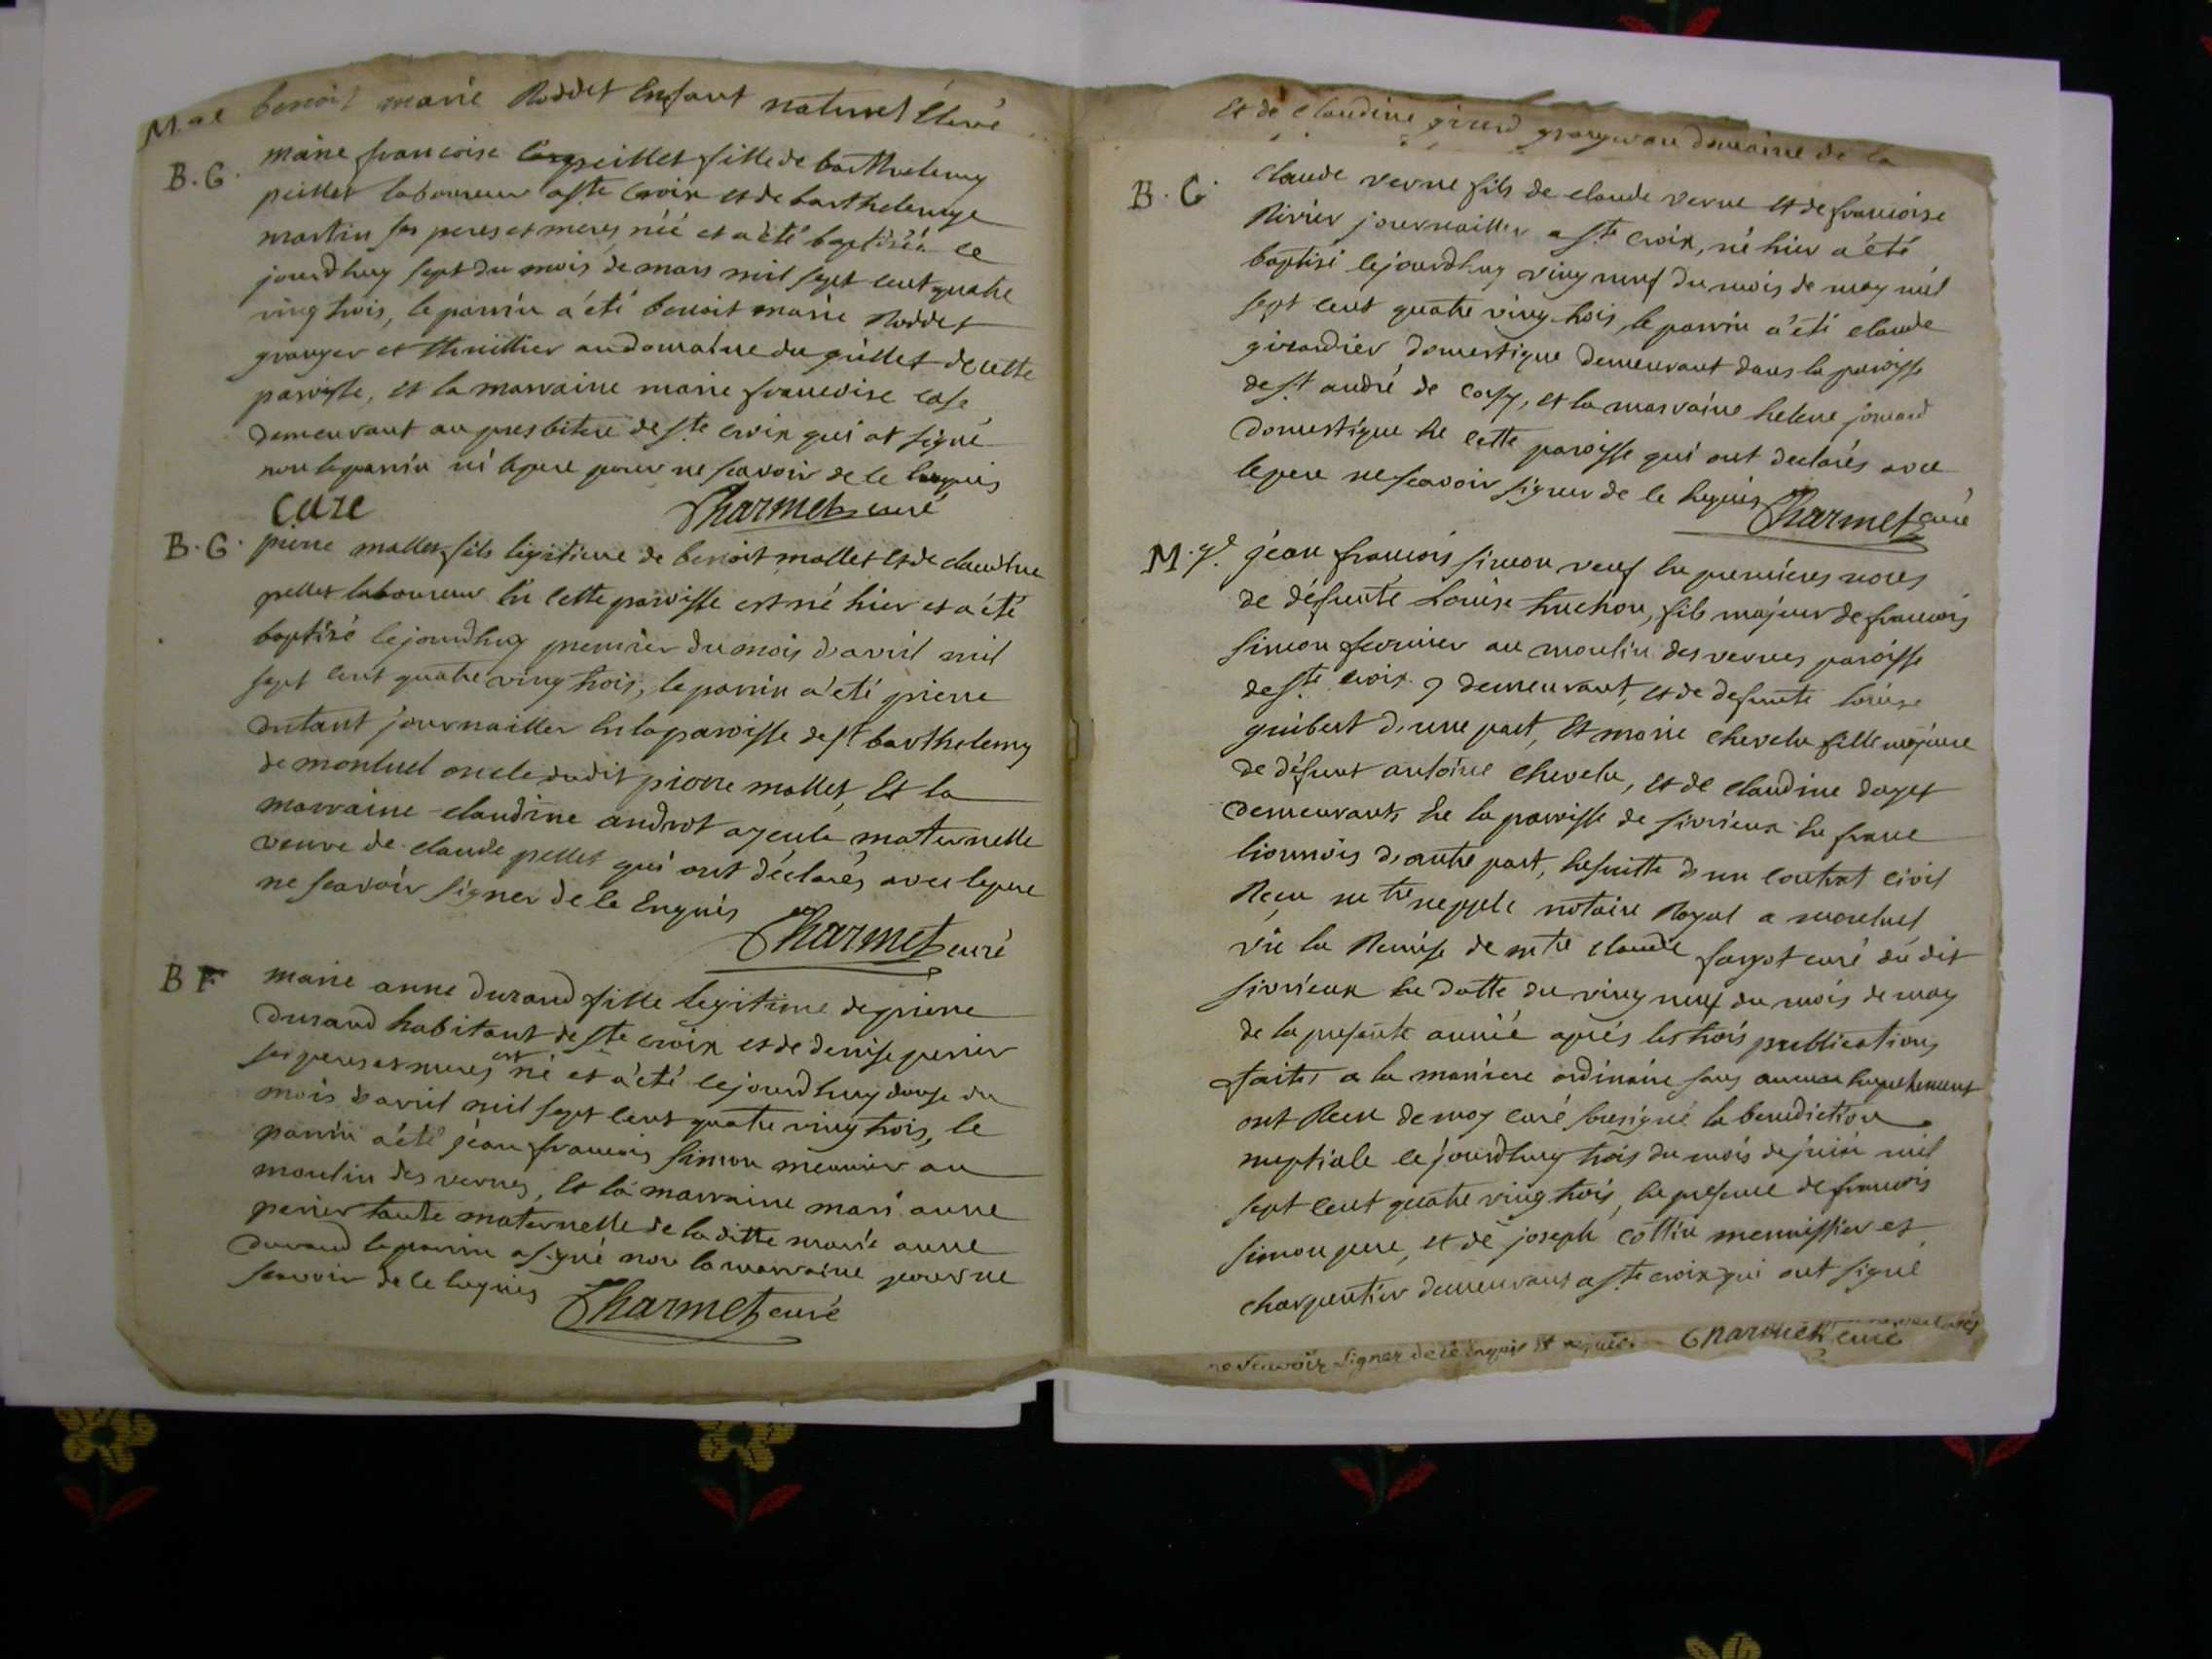 M. ge benoit marie Roddet Enfant naturel Elevé
B. G. marie francoise peillet fille de barthelemy
peillet laboureur a ste Croix et de barthelemye
martin ses peres et meres, néé et a été baptiséé ce
jourdhuy sept du mois de mars mil sept cent quatre
ving trois, le parrin a été benoit marie Roddet
granger et thuillier au domaine du guillet de cette
paroisse, et la marraine marie francoise case
demeurant au presbitere de ste croix qui at signé
non le parrin ni le pere pour ne scavoir de ce Enquis
case Charmet curé
B. G. pierre mallet fils legitime de benoit mallet et de claudine
pellet laboureur En cette paroisse est né hier et a été
baptisé cejourdhuy premier du mois d'avril mil
sept cent quatre ving trois, le parrin a été pierre
dutant journaillier En la paroisse de st barthelemy
de montuel oncle dudit pierre mallet, Et la
marraine claudine androt ayeule maternelle
veuve de claude pellet qui ont déclarés avec le pere
ne scavoir signer de ce Enquis
Charmet curé
B F marie anne durand fille legitime de pierre
durand habitant de ste croix et de denise perier
ses peres et meres est né et a été cejourdhuy douse du
mois d'avril mil sept cent quatre ving trois, le
parrin a été jéan francois simon meunier au
moulin des vernes, Et la marraine mari anne
perier tante maternelle de la ditte marie anne
durand le parrin a signé non la marraine pour ne
scavoir de ce Enquis Charmet curé
Et de Claudine girerd granger au domaine de la
B. G. Claude verne fils de claude verne et de francoise
Rivier journaillier a ste croix, né hier a été
baptisé cejourdhuy ving neuf du mois de may mil
sept cent quatre ving trois, le parrin a été claude
girardier domestique demeurant dans la paroisse
de st andré de corsy, et la marraine helene jomard
domestique En cette paroisse qui ont declarés avec
le pere ne scavoir signer de ce Enquis Charmet curé
M. ge. jéan francois simon veuf En premieres noces
de défunte Louise truchon, fils majeur de francois
simon fermier au moulin des vernes paroisse
de ste croix y demeurant, et de defunte louise
guibert d'une part, Et marie chevelu fille majeure
de défunt antoine chevelu, et de claudine doyet
demeurants En la paroisse de sivrieux En franc
lionnois d'autre part, Ensuitte d'un contrat civil
Recu mtre neppple notaire Royal a montuel
vû la Remise de mtre claude fargot curé du dit
sivrieux En datte du ving neuf du mois de may
de la presente année aprés les trois publications
faites a la maniere ordinaire sans aucun Empechement
ont Recu de moy curé soussigné la benediction
nuptiale cejourdhuy trois du mois de juin mil
sept cent quatre ving trois, En presence de francois
simon pere, et de joseph cottin menuissier et
charpentier demeurant a ste croix qui ont signé
ne scavoir signer de ce Enquis et requis. Charmet curé